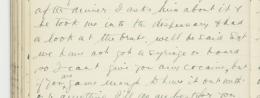 of the dinner I asks him about it &
he took me into the dispensary & had
a look at the brute, well he said but
we have not got a syringe on board
so I cant give you any cocaine, but
if you game enough to have it out with-
anything I'll do my best for you